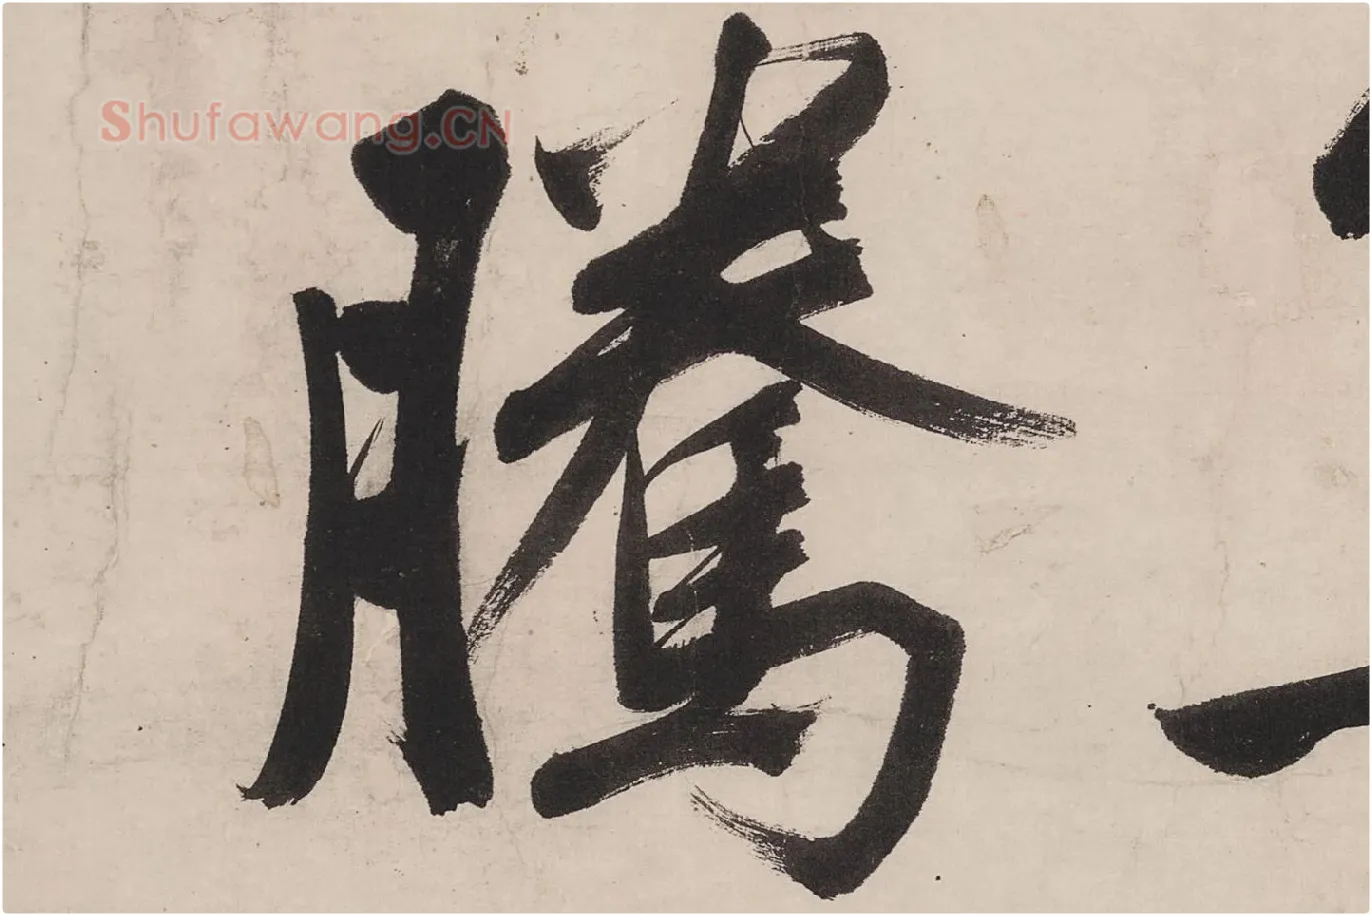 Shufawang.CN
騰